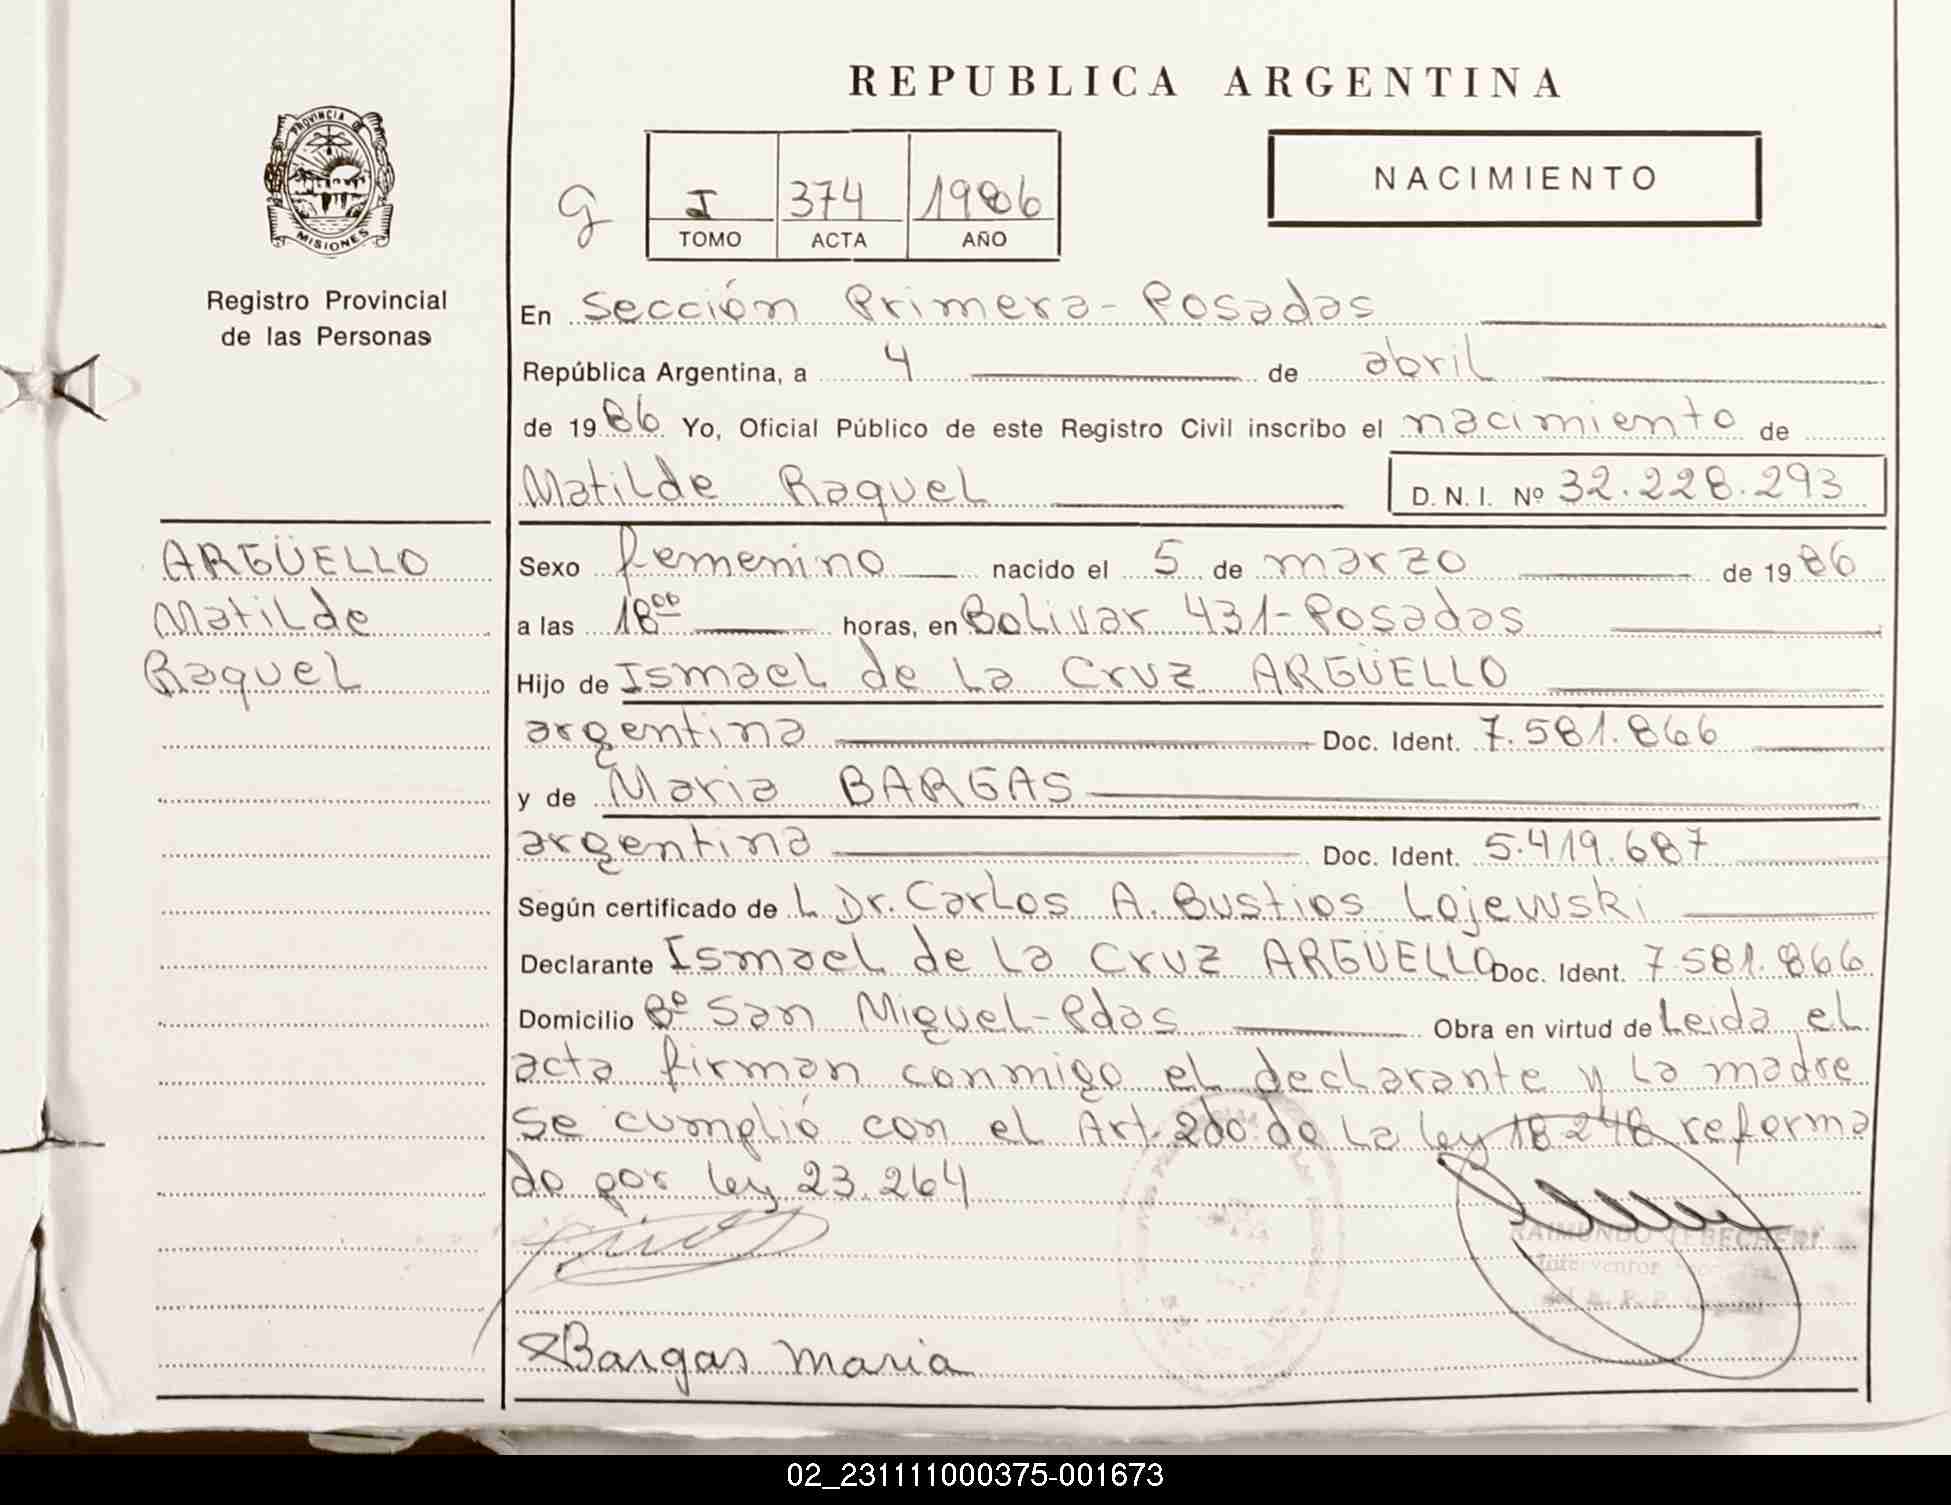 REPUBLICA ARGENTINA
PROVINCIA DE MISIONES
Registro Provincial
de las Personas
g
I 374 1986
TOMO ACTA AÑO
NACIMIENTO
En Sección Primera - Posadas
República Argentina, a 4 de abril
de 1986 Yo, Oficial Público de este Registro Civil inscribo el nacimiento de
Matilde Raquel D. N. I. Nº 32.228.293
ARGÜELLO
Matilde
Raquel
Sexo femenino nacido el 5 de marzo de 1986
a las 18⁰⁰ horas, en Bolivar 431 - Posadas
Hijo de Ismael de la Cruz ARGÜELLO
argentina Doc. Ident. 7.581.866
y de Maria BARGAS
argentina Doc. Ident. 5.419.687
Según certificado de L Dr. Carlos A. Bustios Lojewski
Declarante Ismael de la Cruz ARGÜELLO Doc. Ident. 7.581.866
Domicilio Bº San Miguel - Pdas Obra en virtud de Leida el
acta firman conmigo el declarante y la madre
Se cumplió con el Art. 2do de la ley 18.248 reforma
do por ley 23.264
RAIMUNDO
Interventor
Bargas maria
02_231111000375-001673